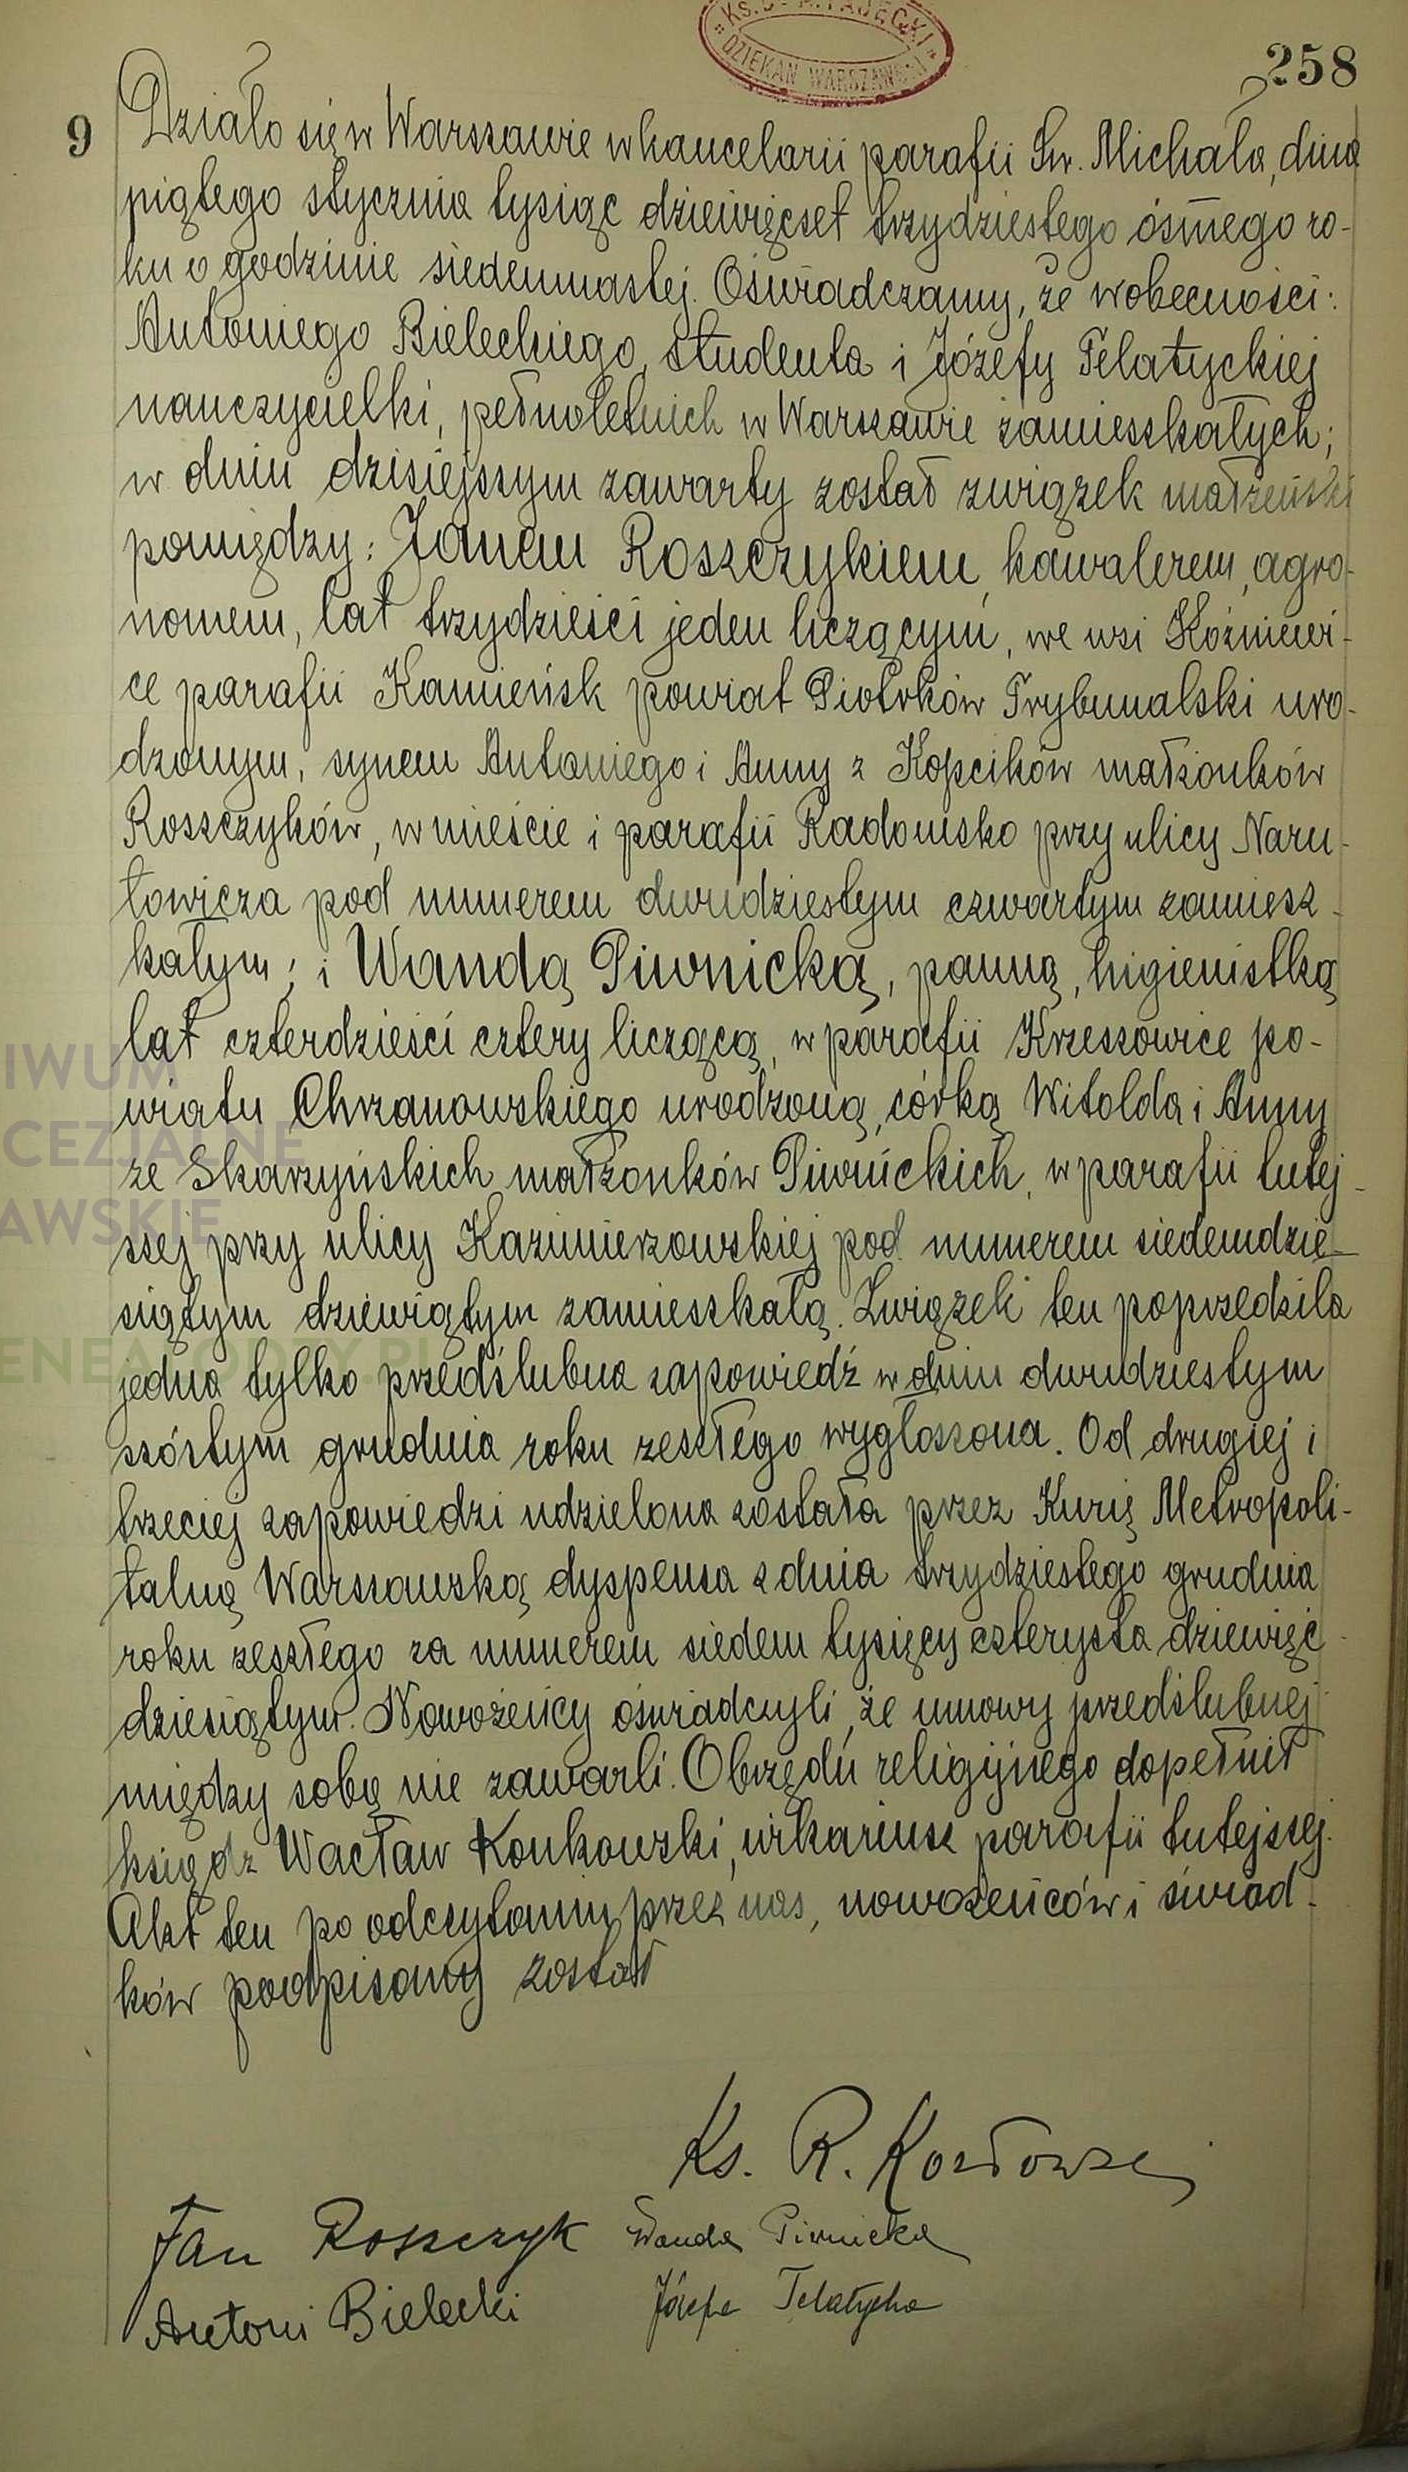 258
9
Działo się w Warszawie w kancelarii parafii Św. Michała, dnia
piątego stycznia tysiąc dziewięćset trzydziestego ósmego ro-
ku o godzinie siedemnastej. Oświadczamy, że w obecności:
Antoniego Bieleckiego, studenta i Józefy Telatyckiej
nauczycielki, pełnoletnich w Warszawie zamieszkałych;
w dniu dzisiejszym zawarty został związek małżeński
pomiędzy: Janem Roszczykiem, kawalerem, agro-
nomem, lat trzydzieści jeden liczącym, we wsi Koźniewi-
ce parafii Kamieńsk powiat Piotrków Trybunalski uro-
dzonym, synem Antoniego i Anny z Kopcików małżonków
Roszczyków, w mieście i parafii Radomsko przy ulicy Naru-
towicza pod numerem dwudziestym czwartym zamiesz-
kałym; i Wandą Piwnicką, panną, higienistką
lat czterdzieści cztery liczącą, w parafii Krzeszowice po-
wiatu Chrzanowskiego urodzoną, córką Witolda i Anny
ze Skarzyńskich małżonków Piwnickich, w parafii tutej-
szej przy ulicy Kazimierzowskiej pod numerem siedemdzie-
siątym dziewiątym zamieszkałą. Związek ten poprzedziła
jedna tylko przedślubna zapowiedź w dniu dwudziestym
szóstym grudnia roku zeszłego wygłoszona. Od drugiej i
trzeciej zapowiedzi udzielona została przez Kurię Metropoli-
talną Warszawską dyspensa z dnia trzydziestego grudnia
roku zeszłego za numerem siedem tysięcy czterysta dziewięć-
dziesiątym. Nowożeńcy oświadczyli, że umowy przedślubnej
między sobą nie zawarli. Obrzędu religijnego dopełnił
ksiądz Wacław Konkowski, wikariusz parafii tutejszej.
Akt ten po odczytaniu przez nas, nowożeńców i świad-
ków podpisany został
Ks. R. Kozłowski
Jan Roszczyk Wanda Piwnicka
Antoni Bielecki Józefa Telatycka
DZIEKAN WARSZAWSKI
IWUM
CEZJALNE
AWSKIE
ENEALODZY.PL